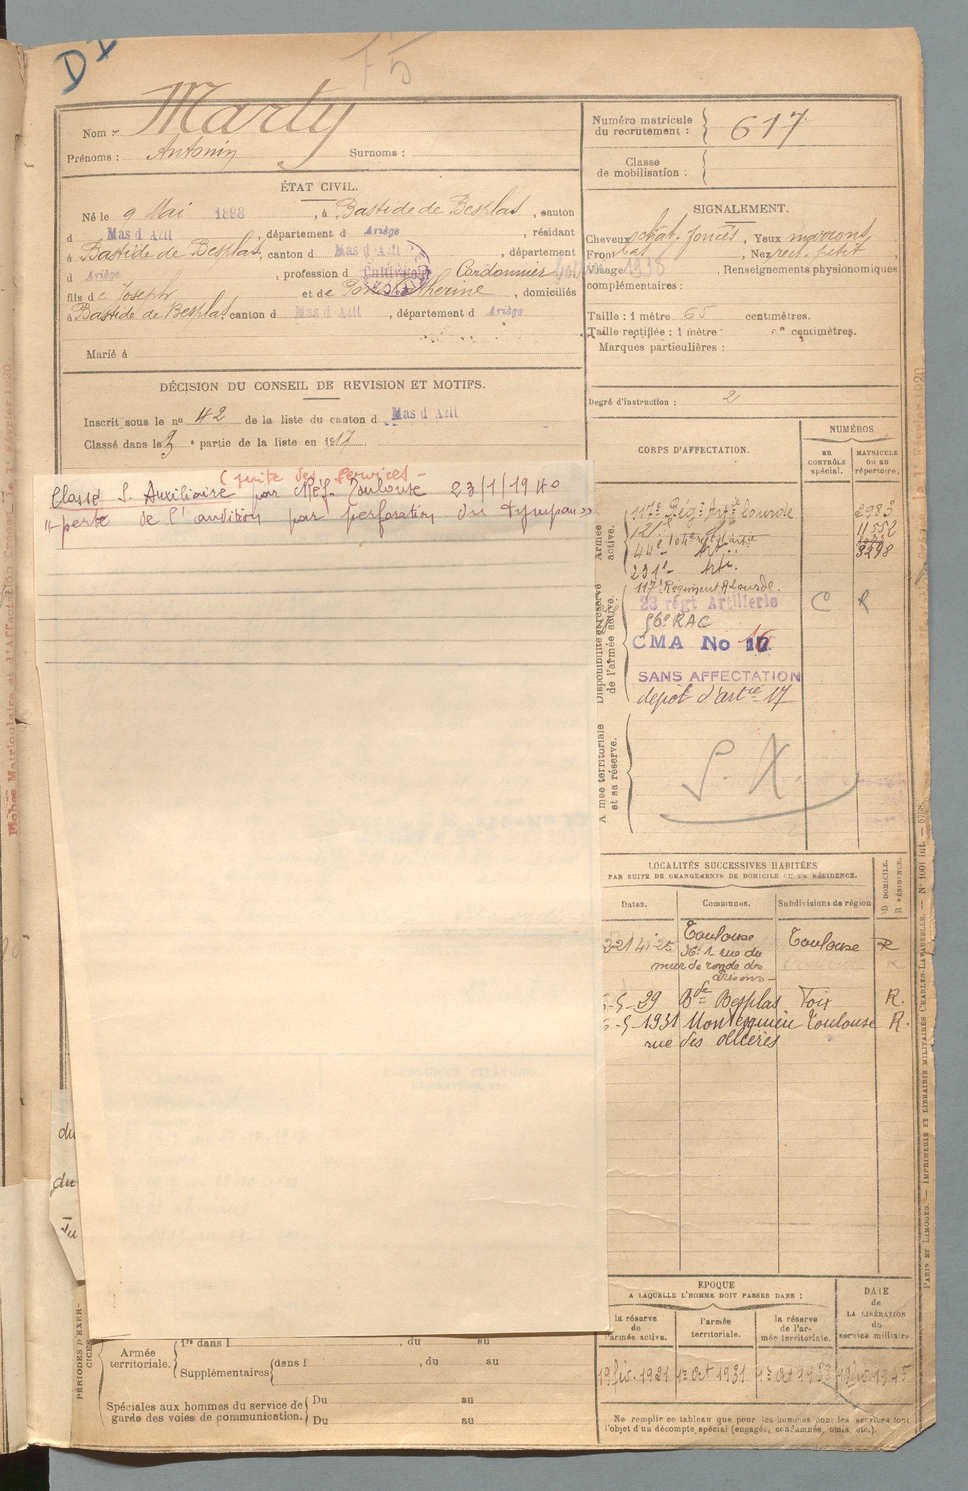 DI
75
Nom :- Marty
Prénoms : Antonin Surnoms :
Numéro matricule du recrutement : 617
Classe de mobilisation :
ÉTAT CIVIL.
Né le 9 Mai 1898, à Bastide de Besplas, canton
d Mas d Azil, département d Ariège, résidant
à Bastide de Besplas, canton d Mas d Azil, département
d Ariège, profession d Cultivateur Cordonnier
fils de Joseph et de Catherine, domiciliés
à Bastide de Besplas canton d Mas d Azil, département d Ariège
Marié à
SIGNALEMENT.
Cheveux chât. foncés, Yeux marrons,
Front bas, Nez rect. petit
Visage, Renseignements physionomiques
complémentaires :
Taille : 1 mètre 65 centimètres.
Taille rectifiée : 1 mètre " centimètres.
Marques particulières :
Degré d'instruction : 2
DÉCISION DU CONSEIL DE REVISION ET MOTIFS.
Inscrit sous le no 42 de la liste du canton d Mas d Azil
Classé dans la 3 e partie de la liste en 1917
(suite des Services -
Classé S. Auxiliaire par Toulouse 23/1/1940
"perte de l'audition par perforation du tympan"
CORPS D'AFFECTATION.
NUMÉROS
AU CONTRÔLE spécial.
MATRICULE OU AU répertoire.
Armée active.
117e Régt Artie Lourde 2983
121e 11552
44e Artie 3298
231e Artie
Disponibilité et réserve de l'armée active.
117e Régiment A Lourde.
23 régt Artillerie C R
56e RAC
CMA No 17 16
SANS AFFECTATION
dépôt d'artie 17
Armée territoriale et sa réserve.
S. X
LOCALITÉS SUCCESSIVES HABITÉES
PAR SUITE DE CHANGEMENTS DE DOMICILE OU DE RÉSIDENCE.
Dates. Communes. Subdivisions de région
D DOMICILE. R RÉSIDENCE.
221 4-25 Toulouse Toulouse R
No 1 rue du
mur de ronde des
prisons -
5-5-29 Bde Besplas Foix R.
5-5-1931 Montesquieu Toulouse R.
rue des ollières
du
du
du
PÉRIODES D'EXERCICES
Armée territoriale.
1re dans l , du au
Supplémentaires dans l , du au
Spéciales aux hommes du service de garde des voies de communication.
Du au
Du au
EPOQUE
A LAQUELLE L'HOMME DOIT PASSER DANS :
la réserve de l'armée active.
l'armée territoriale.
la réserve de l'armée territoriale.
DATE de LA LIBÉRATION du service militaire.
19 fév. 1921 1er oct 1931 1er oct 1938 19 fév. 1945
Ne remplir ce tableau que pour les hommes dont les services font
l'objet d'un décompte spécial (engagés, condamnés, omis, etc.).
PARIS ET LIMOGES. — IMPRIMERIE ET LIBRAIRIE MILITAIRES CHARLES-LAVAUZELLE. — No 1001 int.